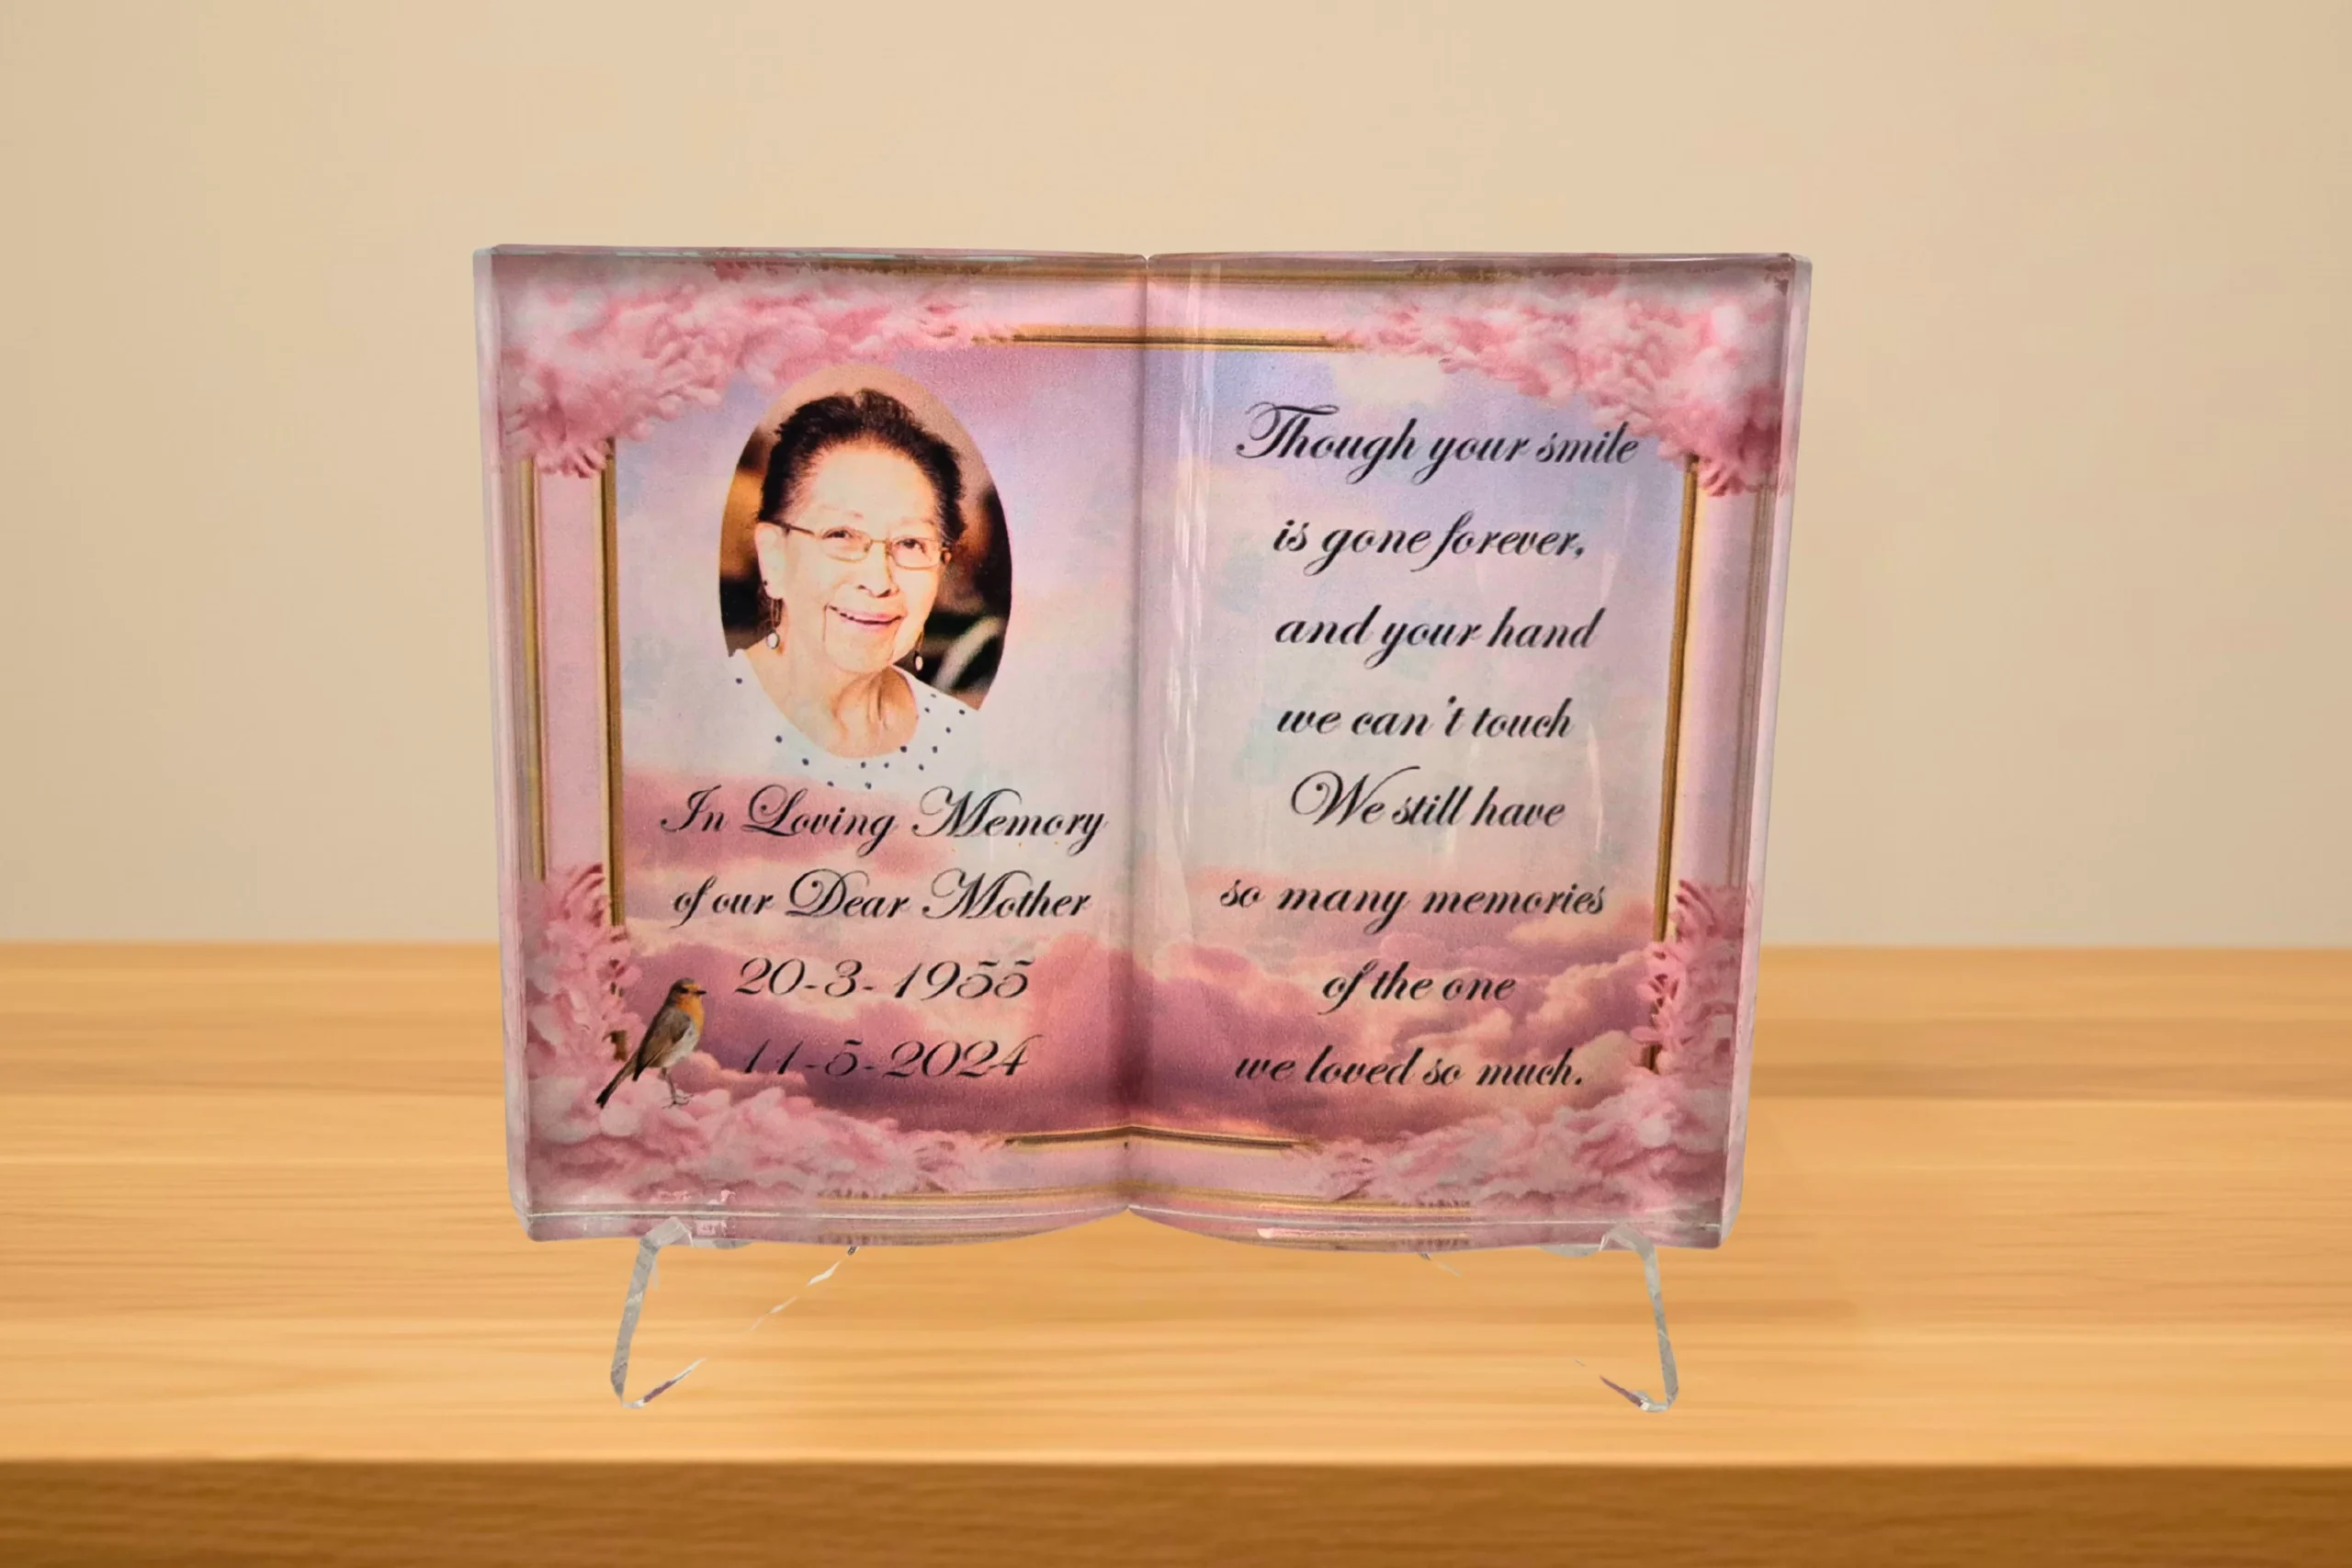 In Loving Memory
of our Dear Mother
20-3-1955
11-5-2024
Though your smile
is gone forever,
and your hand
we can't touch
We still have
so many memories
of the one
we loved so much.